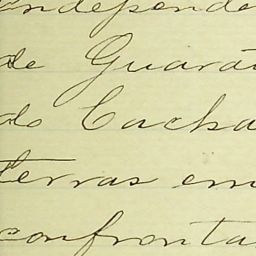 independe
de Guará
do Cacha
terras em
confronta